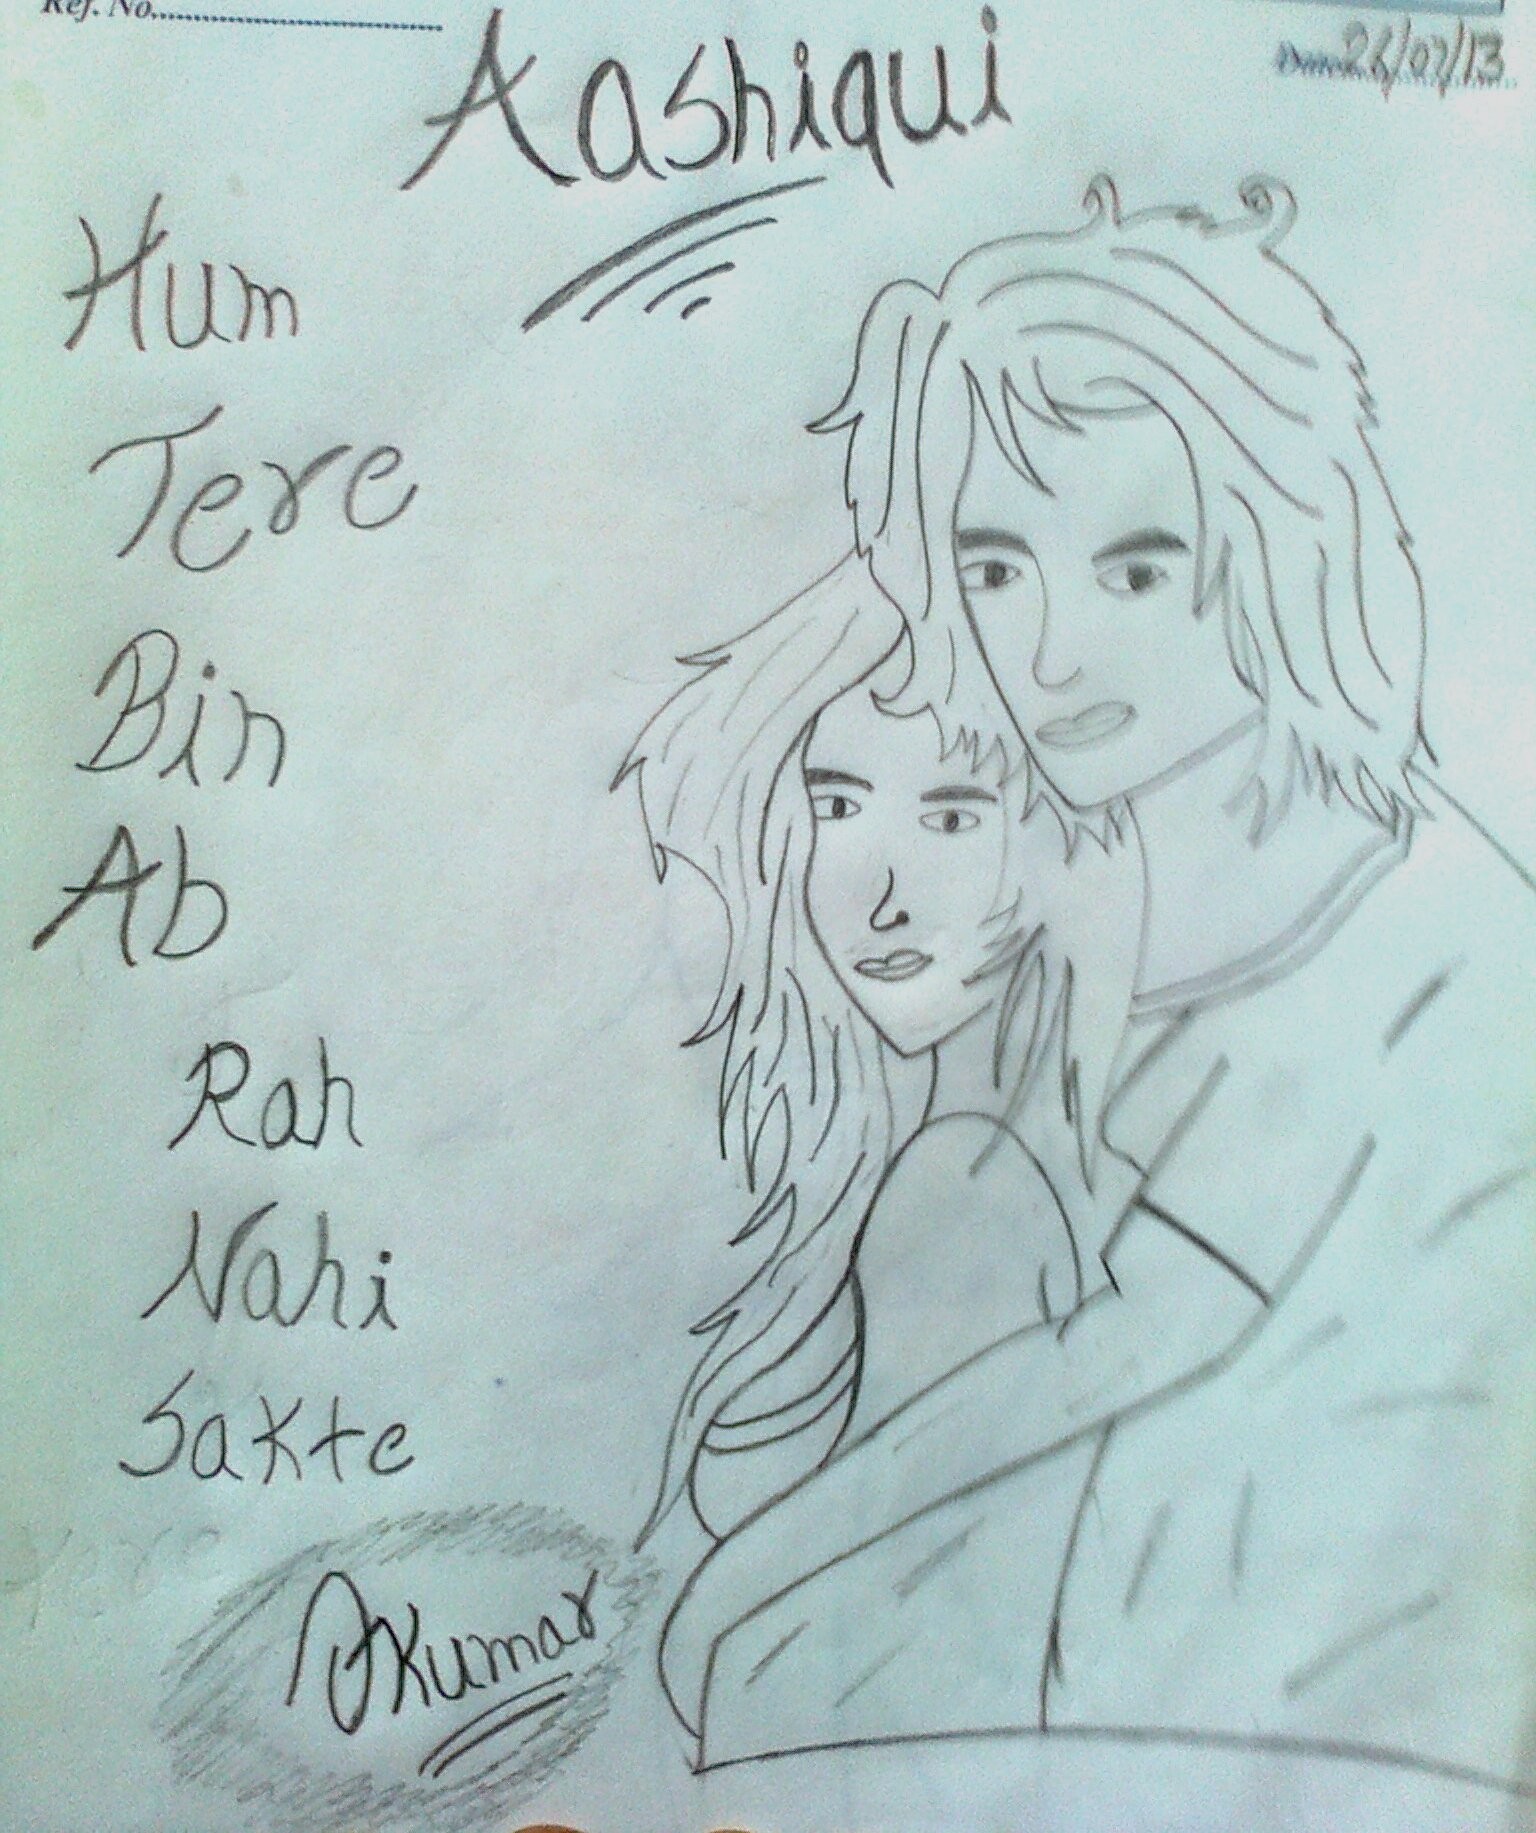 Ref. No.
26/07/13
Aashiqui
Hum
Tere
Bin
Ab
Rah
Nahi
Sakte
Kumar